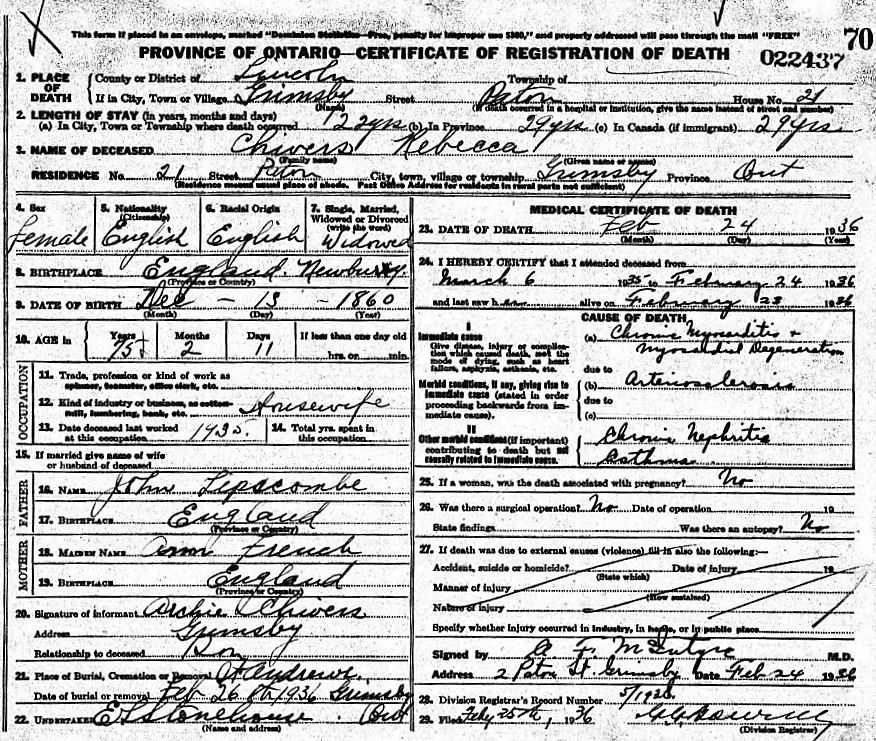 This form if placed in an envelope, marked "Dominion Statistics—Free, penalty for improper use $300," and properly addressed will pass through the mail "FREE"
70
PROVINCE OF ONTARIO—CERTIFICATE OF REGISTRATION OF DEATH
022437
1. PLACE OF DEATH
County or District of Lincoln Township of
If in City, Town or Village Grimsby Street Paton House No. 21
(Name) (If death occurred in a hospital or institution, give the name instead of street and number)
2. LENGTH OF STAY (in years, months and days)
(a) In City, Town or Township where death occurred 22 yrs (b) In Province 29 yrs (c) In Canada (if immigrant) 29 yrs
3. NAME OF DECEASED Chivers Rebecca
(Family name) (Given name or names)
RESIDENCE No. 21 Street Paton City, town, village or township Grimsby Province Ont
(Residence means usual place of abode. Post Office Address for residents in rural parts not sufficient)
4. Sex Female
5. Nationality (Citizenship) English
6. Racial Origin English
7. Single, Married, Widowed or Divorced (write the word) Widowed
8. BIRTHPLACE England. Newbury.
(Province or Country)
9. DATE OF BIRTH Dec - 13 - 1860
(Month) (Day) (Year)
10. AGE in Years 75 Months 2 Days 11 If less than one day old hrs. or min.
OCCUPATION
11. Trade, profession or kind of work as spinner, teamster, office clerk, etc.
12. Kind of industry or business, as cotton-mill, lumbering, bank, etc. Housewife
13. Date deceased last worked at this occupation 1935.
14. Total yrs. spent in this occupation
15. If married give name of wife or husband of deceased
FATHER
16. NAME John Lipscombe
17. BIRTHPLACE England
(Province or Country)
MOTHER
18. MAIDEN NAME Ann French
19. BIRTHPLACE England
(Province or Country)
20. Signature of informant Archie Chivers
Address Grimsby
Relationship to deceased Son
21. Place of Burial, Cremation or Removal St Andrews.
Date of burial or removal Feb 26th 1936 Grimsby
22. UNDERTAKER E Stonehouse. Ont
(Name and address)
MEDICAL CERTIFICATE OF DEATH
23. DATE OF DEATH Feb 24 1936
(Month) (Day) (Year)
24. I HEREBY CERTIFY that I attended deceased from
March 6 1935 to February 24 1936
and last saw her alive on February 23 1936
CAUSE OF DEATH
I
Immediate cause
Give disease, injury or complication which caused death, not the mode of dying, such as heart failure, asphyxia, asthenia, etc.
(a) Chronic Myocarditis + Myocardial Degeneration
due to
Morbid conditions, if any, giving rise to immediate cause (stated in order proceeding backwards from immediate cause).
(b) Arteriosclerosis
due to
(c)
II
Other morbid conditions (if important) contributing to death but not causally related to immediate cause.
Chronic Nephritis
Asthma
25. If a woman, was the death associated with pregnancy? No
26. Was there a surgical operation? No Date of operation 19
State findings Was there an autopsy? No
27. If death was due to external causes (violence) fill in also the following:—
Accident, suicide or homicide? Date of injury 19
(State which)
Manner of injury
(How sustained)
Nature of injury
Specify whether injury occurred in industry, in home, or in public place
Signed by A F McIntyre M.D.
Address 2 Paton St. Grimsby Date Feb 24 1936
28. Division Registrar's Record Number 5/1936
29. Filed Feby 25th, 1936
(Division Registrar)